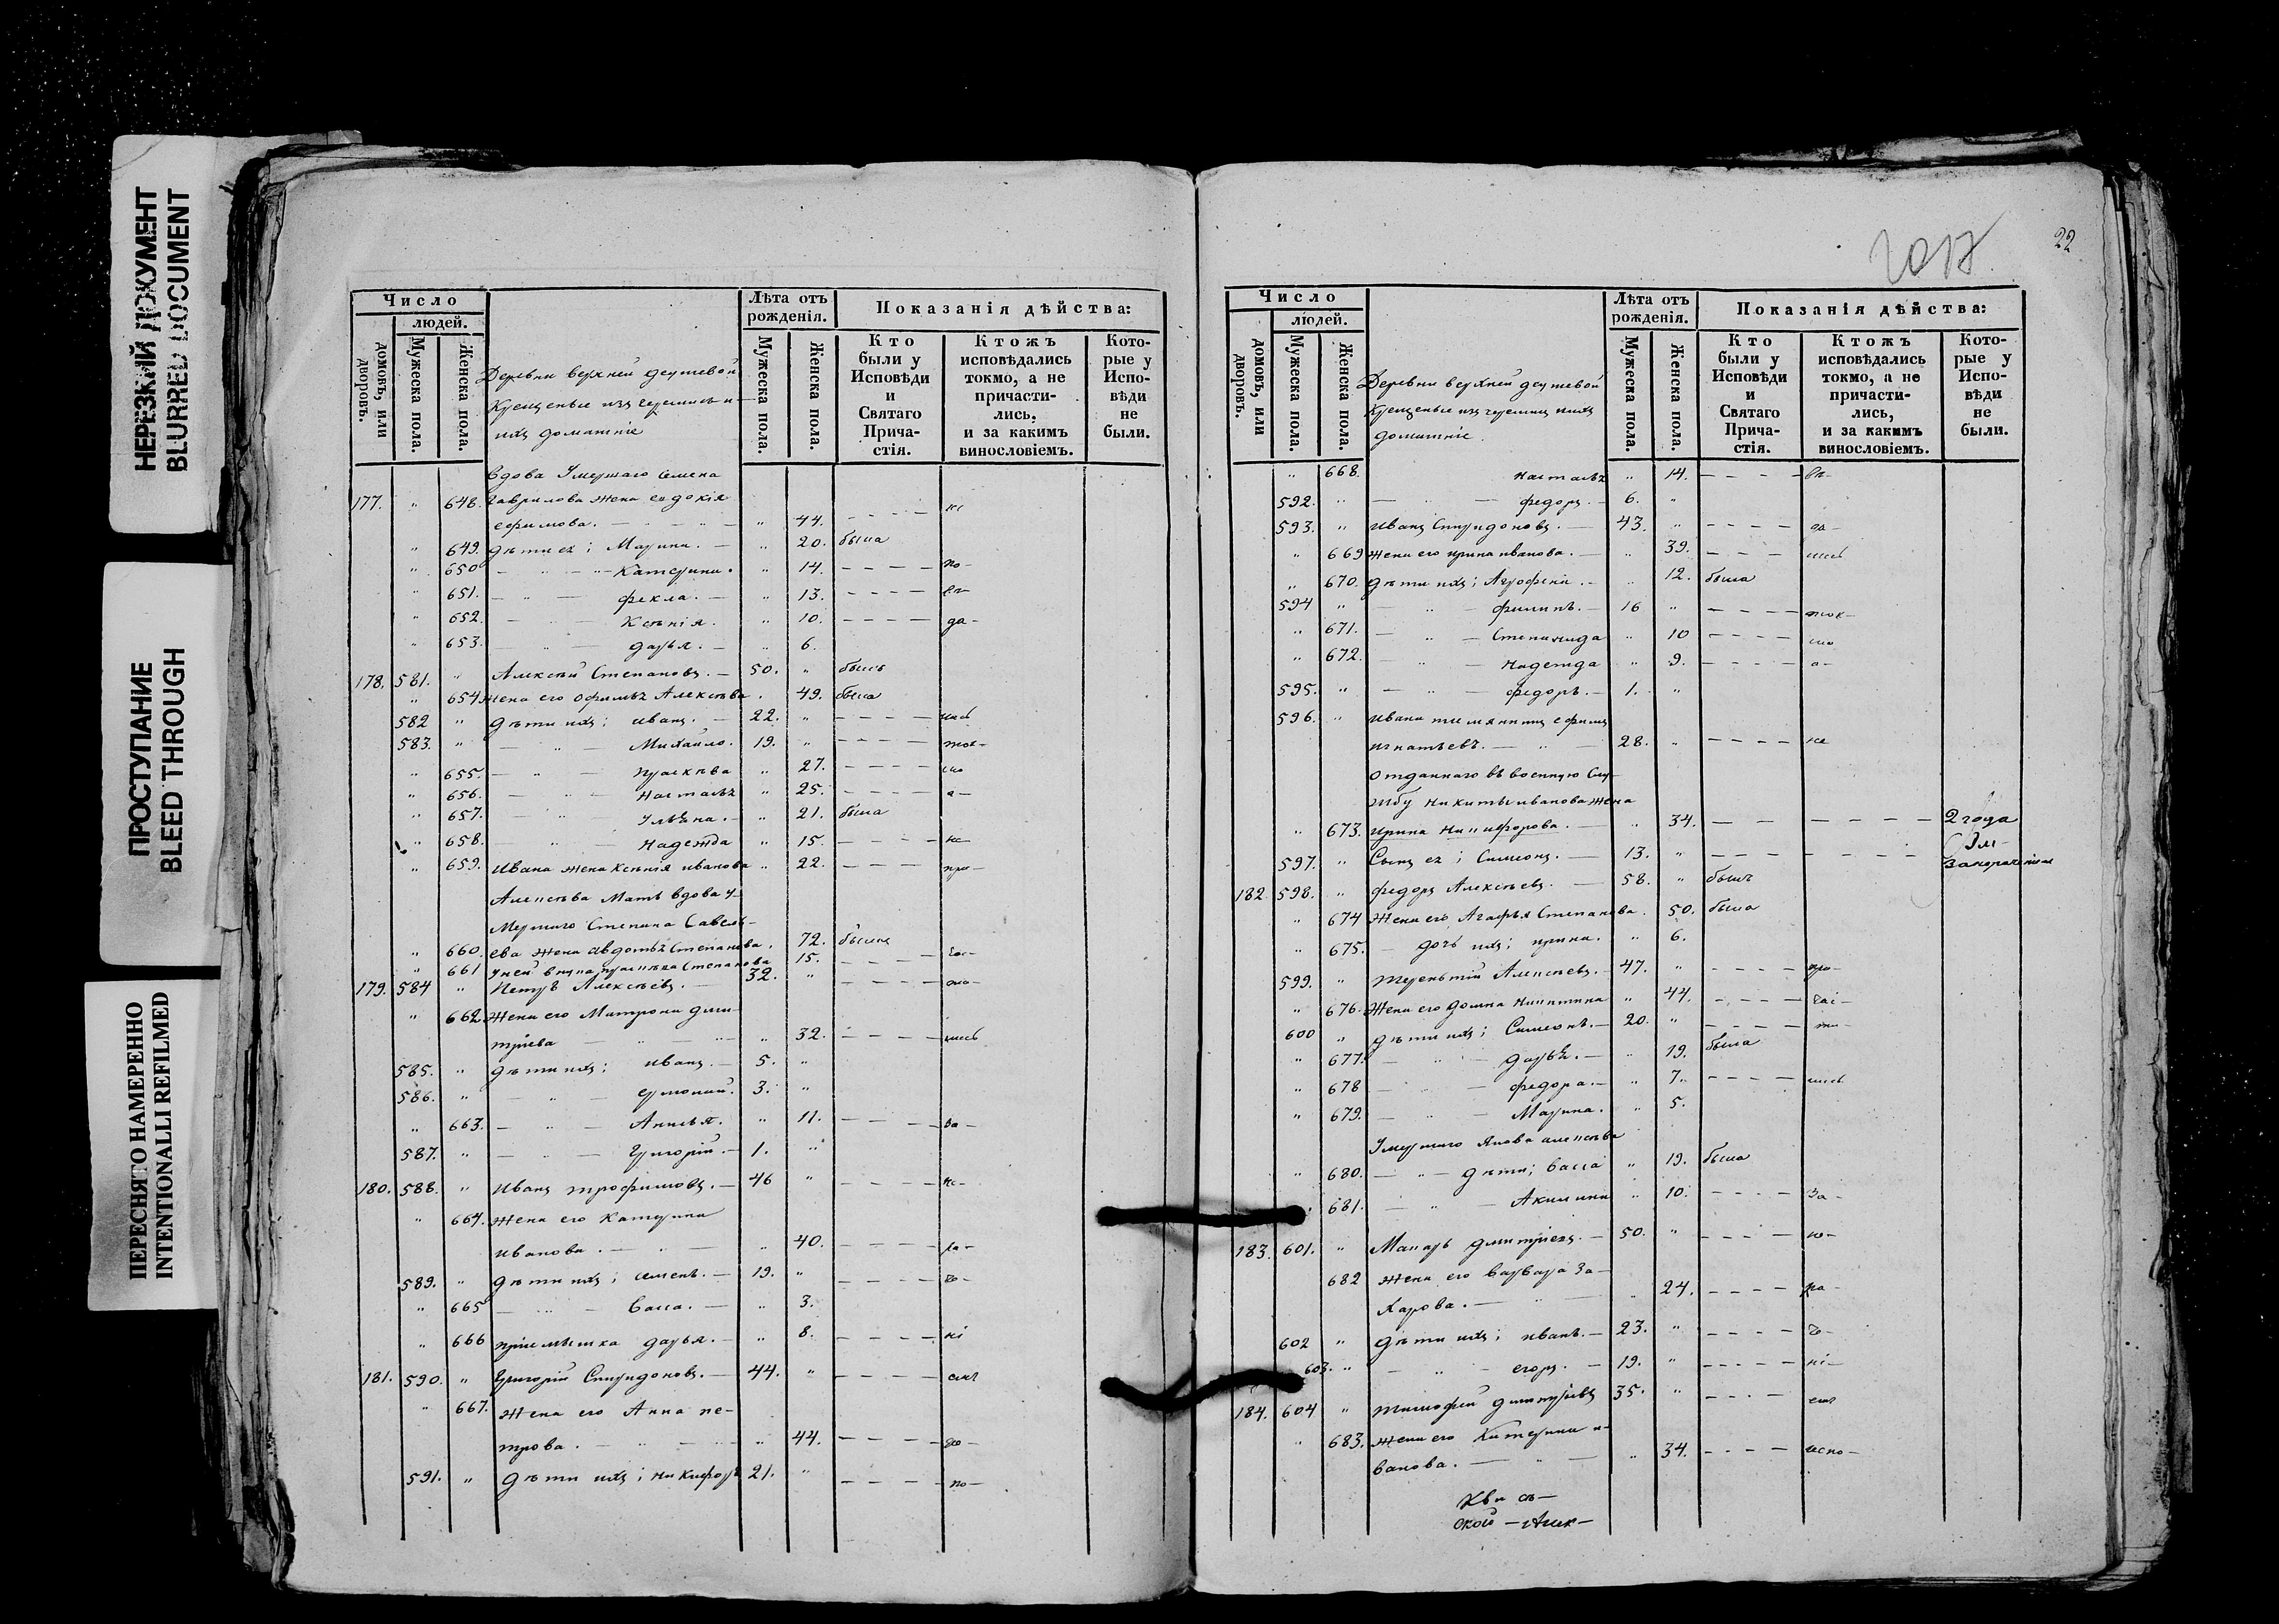 НЕРЕЗКИЙ ДОКУМЕНТ
BLURRED DOCUMENT
ПРОСТУПАНИЕ
BLEED THROUGH
ПЕРЕСНЯТО НАМЕРЕННО
INTENTIONALLI REFILMED
Число
людей.
домовъ, или дворовъ.
Мужеска пола.
Женска пола.
Деревни верхней
Крещеные изъ черемисъ и
ихъ домашніе
Лѣта отъ рожденія.
Мужеска пола.
Женска пола.
Показанія дѣйства:
Кто были у Исповѣди и Святаго Причастія.
Ктожъ исповѣдались токмо, а не причастились, и за какимъ винословіемъ.
Которые у Исповѣди не были.
вдова Умершаго Семена
177. " 648. Гаврилова жена евдокія
ефимова. — " — " 44. - - - -
" 649. дѣти ея; Марина. — " 20. была
" 650 — " — Катерина. " 14. - - - - по-
" 651. — " — фекла. — " 13. - - - -
" 652. — " — Ксенія. " 10. - - - - да-
" 653. — " — дарья. — " 6.
178. 581. " Алексѣй Степановъ. — 50. " былъ
" 654 жена его Офимья Алексѣева. 49. была
582 " дѣти ихъ; иванъ. — 22. " - - - -
583. " — " — Михайло. 19. " - - - - ток-
" 655. — " — праскева " 27. - - - - мо
" 656. — " — Настасья " 25. - - - - а-
" 657. — " Ульяна. — " 21. была
" 658. — " — Надежда " 15. - - - - не-
" 659. Ивана жена Ксенія иванова " 22. - - - при-
Алексѣева Мать вдова у-
Мершаго Степана Савель-
" 660. ева жена авдотья Степанова. 72. была
" 661 Унея внука праскева Степанова 15. - - - -
179. 584 " Петръ Алексѣевъ. — 32. " - - - -
" 662 Жена его Матрона дми-
тріева — " — " 32. - - - - лись
585. " дѣти ихъ; иванъ. — 5. "
586. " — " — 3. "
" 663. — " — " 11. - - - - за-
587. " — " — Григорій. — 1. "
180. 588. " Иванъ трофимовъ. — 46 " - - - -
" 664. Жена его Катерина
иванова. — " — " 40. - - - -
589. " дѣти ихъ; семенъ. — 19. " - - - -
" 665 — " — Васса. — " 3.
" 666 пріемышка дарья. — " 8. - - - -
181. 590. " Григорій Спиридоновъ. — 44. " - - - -
" 667. Жена его Анна пе-
трова. — " — " 44. - - - -
591. " дѣти ихъ; никифоръ 21. " - - - - по-
22
Число
людей.
домовъ, или дворовъ.
Мужеска пола.
Женска пола.
Деревни верхней
Крещеные изъ черемисъ ихъ
домашніе.
Лѣта отъ рожденія.
Мужеска пола.
Женска пола.
Показанія дѣйства:
Кто были у Исповѣди и Святаго Причастія.
Ктожъ исповѣдались токмо, а не причастились, и за какимъ винословіемъ.
Которые у Исповѣди не были.
" 668. Настасья " 14. - - - -
592. " — " — федоръ. — 6. "
593. " иванъ Спиридоновъ. — 43. " - - - - да-
" 669 жена его ирина иванова. — " 39. - - - лись
" 670. дѣти ихъ; Агрофена. — " 12. была
594 " — " — филипъ. — 16 " - - - - ток-
" 671. — " — Степанида " 10 - - - - мо
" 672. — " — Надежда " 9. - - - - а-
595. " — " — федоръ. — 1. "
596. " ивана ефимъ
игнатьевъ. — " — 28. " - - - - не
Отданнаго въ военную слу-
жбу никиты иванова жена
" 673. ирина никифорова. — " 34. — — — — — 2 года
597. " Сынъ ея; Симеонъ. — 13. " — — — — —
182 598. " федоръ Алексѣевъ. — 58. " былъ
" 674 Жена его Агафья Степанова. 50. была
" 675. — дочь ихъ; ирина. " 6.
599. " терентій Алексѣевъ. — 47. " - - - - при-
" 676. Жена его домна никитина " 44. - - - -
600 " дѣти ихъ; Симеонъ. — 20. " - - - -
" 677. — " — дарья. — " 19. была
" 678 — " — федора. — " 7. - - - - лись
" 679. — " — Марина. " 5.
Умершаго Якова алексѣева
" 680. — " — дѣти; васса " 19. была
681. — " — Акилина " 10. - - - - за-
183. 601. " Макаръ дмитріевъ. — 50. " - - - -
682 Жена его варвара за-
харова. — " — " 24. - - - -
602 " дѣти ихъ; иванъ. — 23. " - - - -
603. " — " — егоръ. — 19. " - - - -
184. 604 " тимофей дмитріевъ 35. " - - - -
" 683. Жена его Катерина и-
ванова. — " — " 34. - - - - испо-